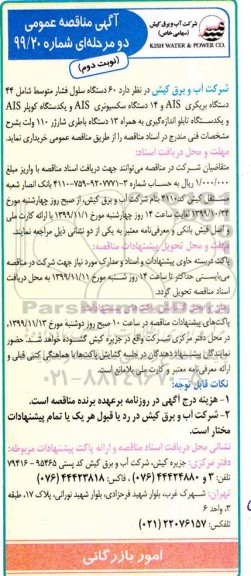 شرکت آب و برق کیش
(سهامی خاص)
KISH WATER & POWER CO.
آگهی مناقصه عمومی
دو مرحله‌ای شماره ۹۹/۲۰
(نوبت دوم)
شرکت آب و برق کیش در نظر دارد ۶۰ دستگاه سلول فشار متوسط شامل ۴۴
دستگاه بریکری AIS و ۱۴ دستگاه سکسیونری AIS و یکدستگاه کوپلر AIS
و یکدستگاه تابلو اندازه‌گیری به همراه ۱۳ دستگاه باطری شارژر ۱۱۰ ولت بشرح
مشخصات فنی مندرج در اسناد مناقصه را از طریق مناقصه عمومی خریداری نماید.
مهلت و محل دریافت اسناد:
متقاضیان شرکت در مناقصه می‌توانند جهت دریافت اسناد مناقصه با واریز مبلغ
۱/۰۰۰/۰۰۰ ریال به حساب شماره ۲-۹۲۰۷۷۷۱-۷۵۹-۴۱۱۰ بانک انصار شعبه
مستقل کیش کد ۴۱۱۰ بنام شرکت آب و برق کیش، از صبح روز چهارشنبه مورخ
۱۳۹۹/۱۰/۲۴ لغایت ساعت ۱۴ روز چهارشنبه مورخ ۱۳۹۹/۱۱/۱ با ارائه کارت ملی
و اصل فیش بانکی و معرفی‌نامه معتبر به یکی از دو نشانی ذیل مراجعه نمایند.
مهلت و محل تحویل پیشنهادات مناقصه:
پاکت دربسته حاوی پیشنهادات و اسناد و مدارک مورد نیاز جهت شرکت در مناقصه
می‌بایستی حداکثر تا ساعت ۱۴ روز شنبه مورخ ۱۳۹۹/۱۱/۱۱ به محل دریافت
اسناد مناقصه تحویل گردد.
پاکت‌های پیشنهادات مناقصه در ساعت ۱۰ صبح روز دوشنبه مورخ ۱۳۹۹/۱۱/۱۳،
در محل دفتر مرکزی شرکت واقع در جزیره کیش گشوده خواهد شد. حضور
نمایندگان پیشنهاددهندگان در جلسه گشایش پاکت‌ها با هماهنگی کتبی قبلی و
ارائه معرفی‌نامه معتبر و کارت ملی بلامانع است.
نکات قابل توجه:
۱- هزینه درج آگهی در روزنامه برعهده برنده مناقصه است.
۲- شرکت آب و برق کیش در رد یا قبول هر یک یا تمام پیشنهادات
مختار است.
نشانی محل دریافت اسناد مناقصه و ارائه پاکت پیشنهادات مربوطه:
دفتر مرکزی: جزیره کیش، شرکت آب و برق کیش کد پستی ۹۵۴۶۵ - ۷۹۴۱۶
تلفن: ۳ و ۴۴۴۲۴۸۸۰ (۰۷۶) ، فاکس: ۴۴۴۲۳۸۱۸ (۰۷۶)
تهران: شهرک غرب، بلوار شهید فرحزادی، بلوار شهید نورانی، پلاک ۱۷، طبقه
۳، واحد ۶
تلفکس: ۲۲۰۷۶۱۵۷ (۰۲۱)
امور بازرگانی